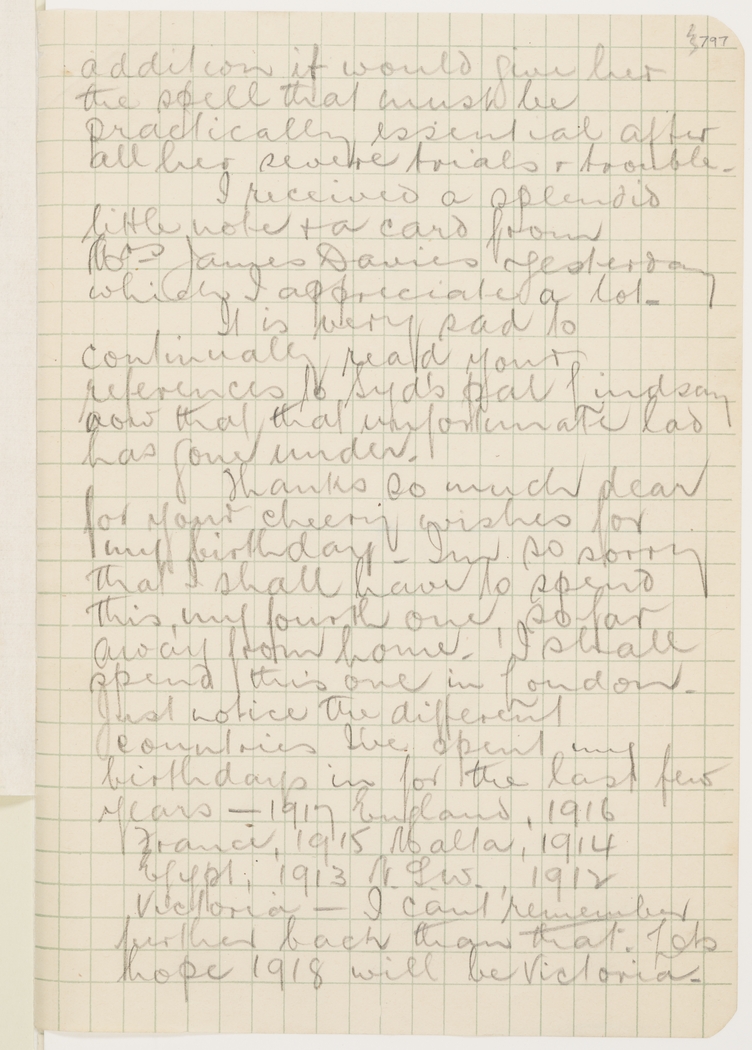 797
addition it would give her
the spell that must be
practically essential after
all her severe trials & trouble.
I received a splendid
little note & a card from
Mrs James Davies yesterday
which I appreciate a lot.
It is very sad to
continually read your
references to Syd's pal Lindsay
now that that unfortunate lad
has gone under.
Thanks so much dear
for your cheery wishes for
my birthday - I'm so sorry
that I shall have to spend
this, my fourth one, so far
away from home. I shall
spend this one in London.
Just notice the different
countries I've spent my
birthdays in for the last few
years — 1917 England, 1916
France, 1915 Malta, 1914
Egypt, 1913 N.S.W., 1912
Victoria — I can't remember
further back than that. Lets
hope 1918 will be Victoria.